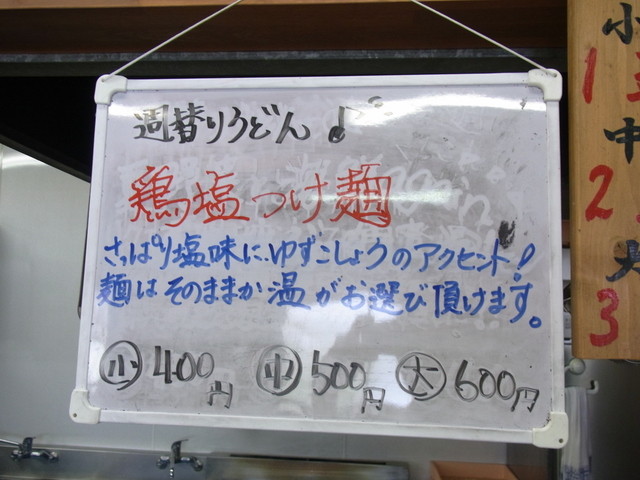 週替りうどん♪
鶏塩つけ麺
さっぱり塩味に、ゆずこしょうのアクセント!
麺はそのままか温がお選び頂けます。
小 400円 中 500円 大 600円
小
1
中
2
大
3